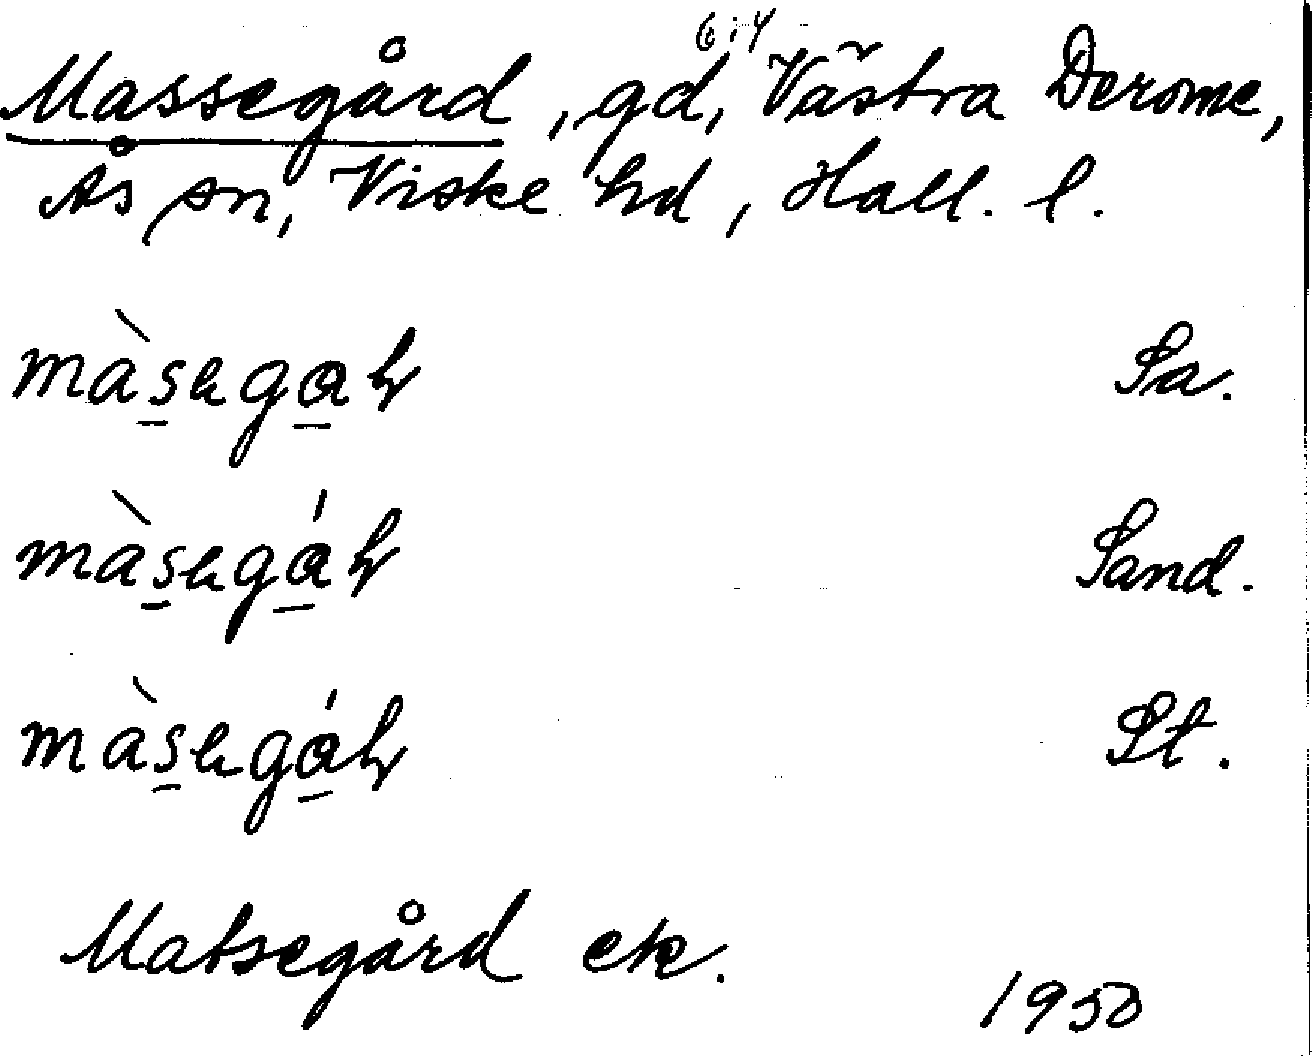 6:4
Massegård, gd, Västra Derome,
Ås sn, Viske hd, Hall. l.
Sa.
Sand.
St.
Matsegård ek.
1950